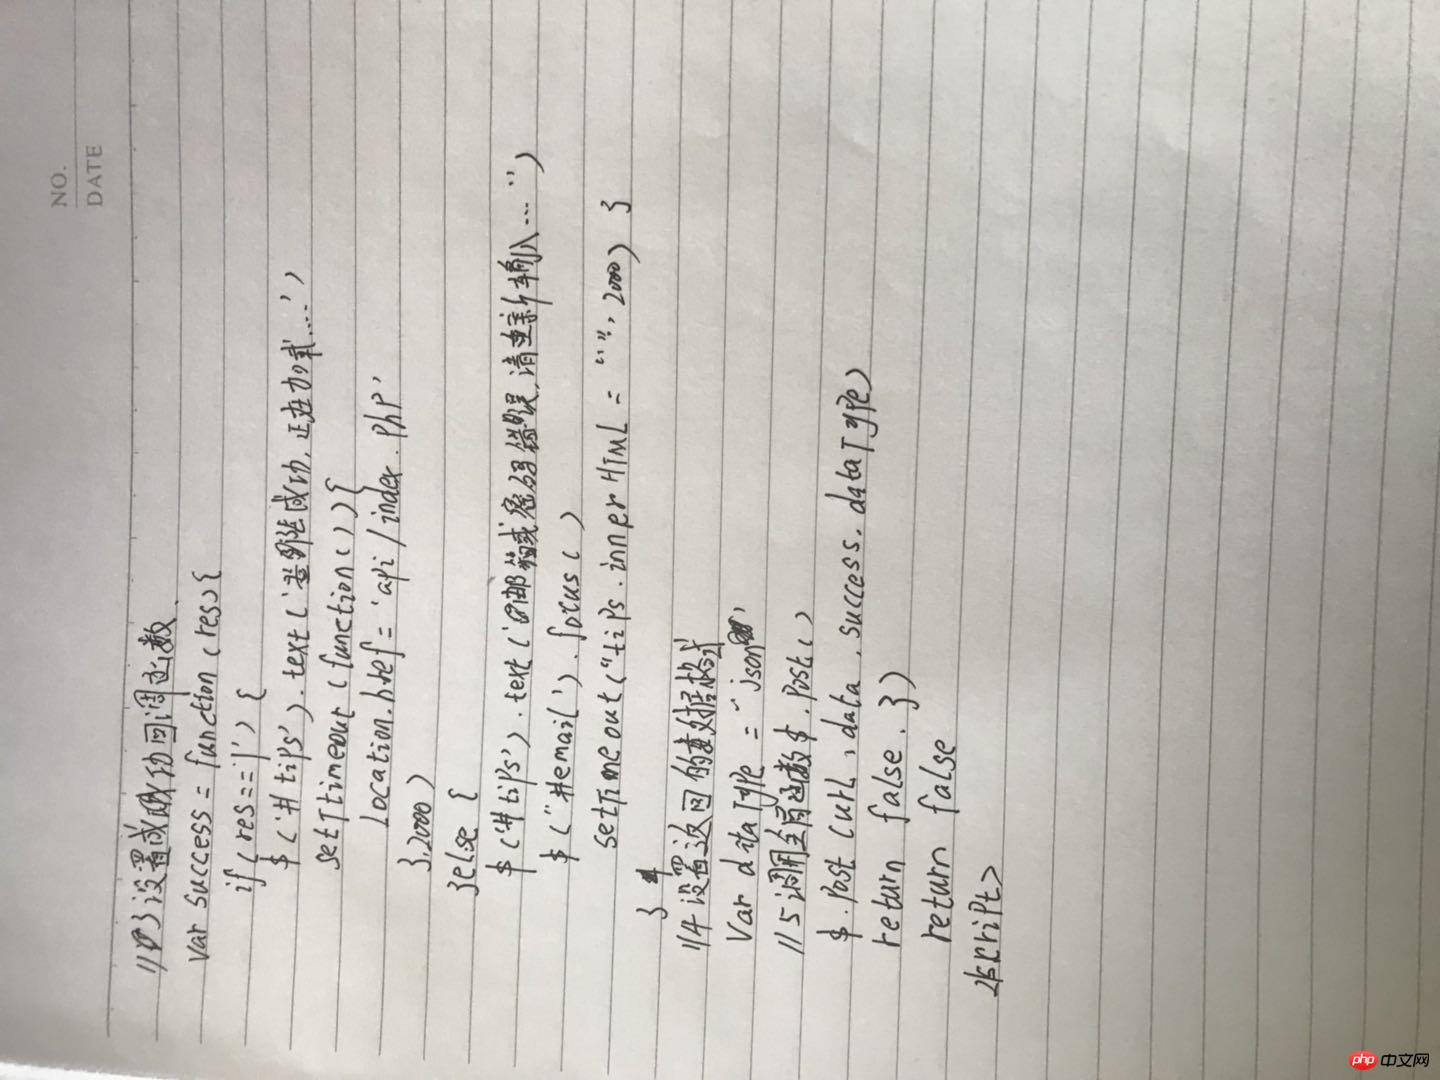 NO.
DATE
//3 设置成功回调函数
var success = function (res) {
if (res == '1') {
$ ('# tips') . text ('登陆成功, 正在加载....')
setTtimeout (function () ) {
location.href = 'api / index . php'
}, 2000)
}else {
$ ('# tips') . text ('邮箱或密码错误, 请重新输入...")
$ ("#email') . focus ( )
setTimeout ("tips . inner HTML = "", 2000) }
}
//4 设置返回的数据格式
Var data Type = "json"
//5 调用全局函数 $ . post ( )
$ . post ( url , data , success . data Type)
return false . })
return false
script>
php 中文网